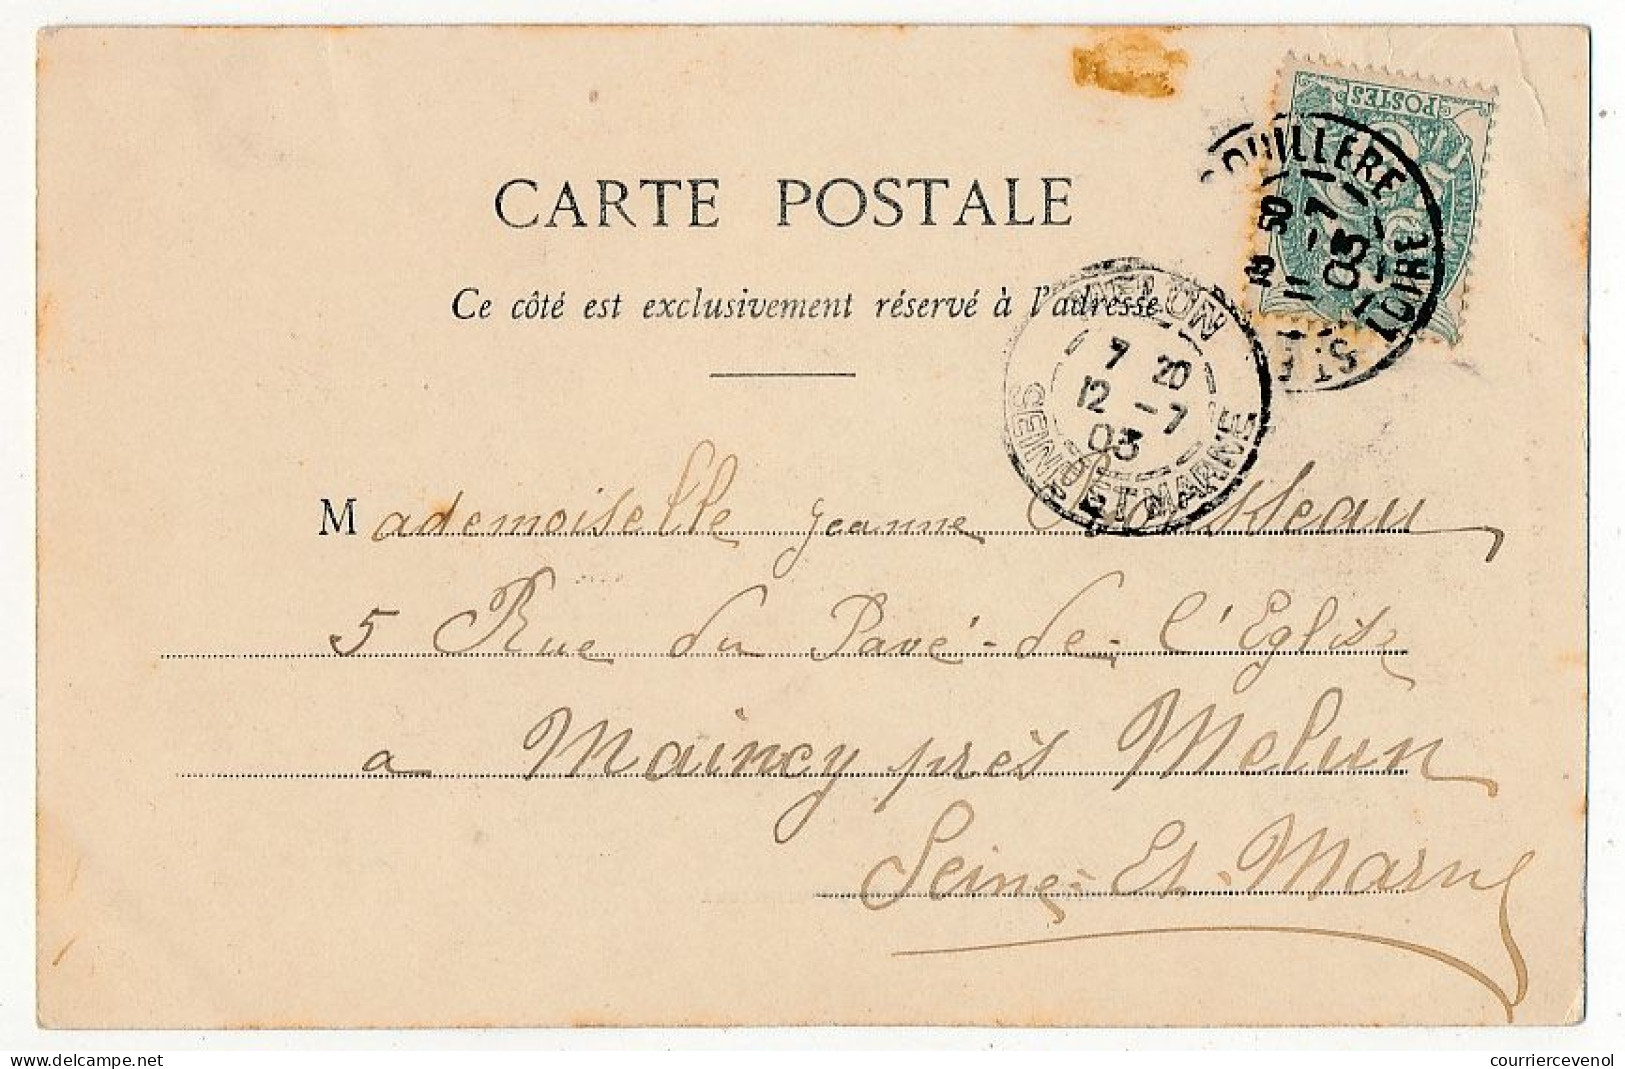 POSTES
OUILLERE
8 50
11 -7
03
LOIRE
ST E
CARTE POSTALE
Ce côté est exclusivement réservé à l'adresse
MELUN
7 20
12 -7
03
SEINE ET MARNE
Mademoiselle Jeanne
5 Rue du Pavé-de-l'Eglise
a Maincy près Melun
Seine-Et-Marne
courriercevenol